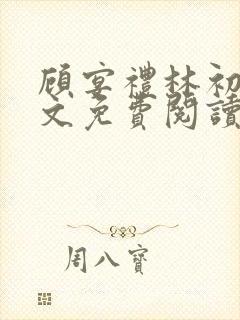 顾宴禮林初
文免費閱讀
周八寶